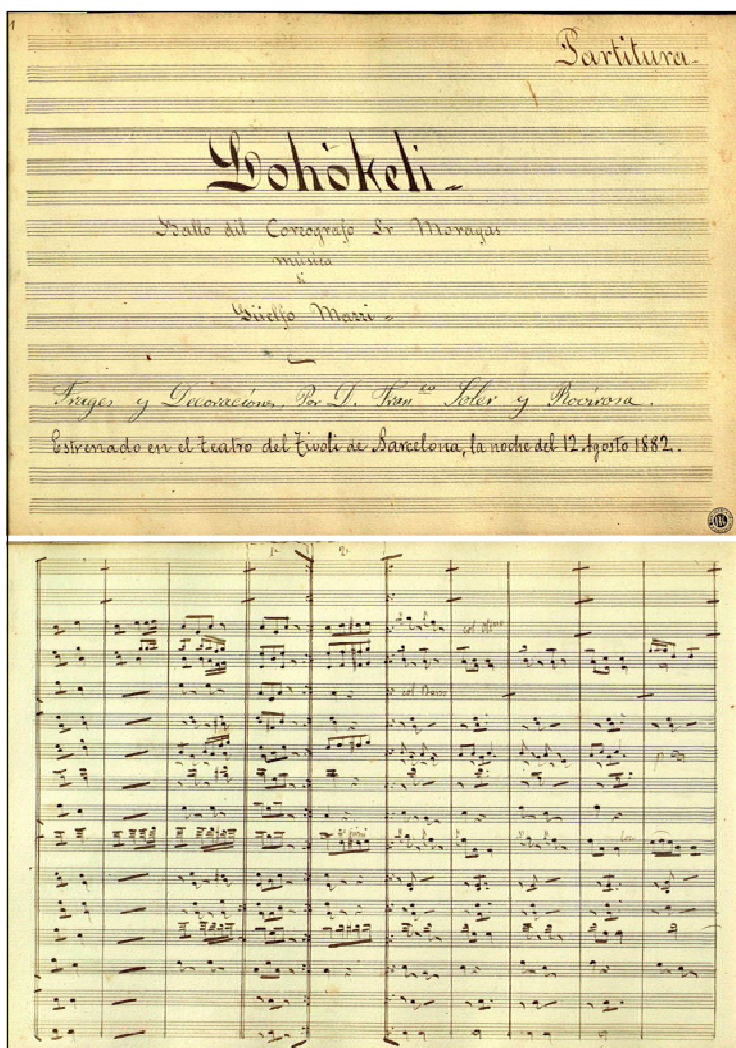 1
Partitura.
Lohökeli.
Ballo dil Coreografo Sr Moragas
música
di
Güelfo Mazzi
Trages y Decoraciones. Por D. Fran.co Soler y Rovirosa.
Estrenado en el Teatro del Tivoli de Barcelona, la noche del 12 Agosto 1882.
1ª 2ª
col
col Basso